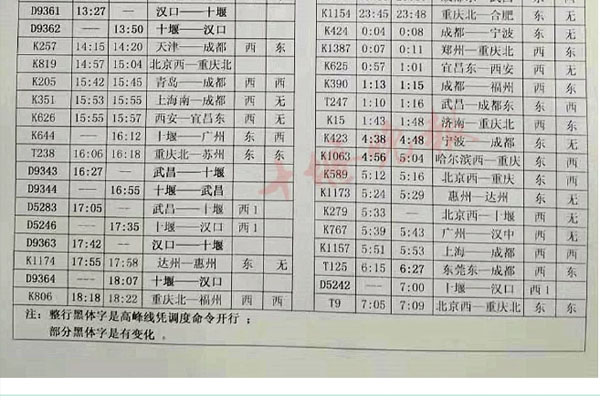 D9361 13:27 --- 汉口—十堰
D9362 --- 13:50 十堰—汉口
K257 14:15 14:20 天津—成都 西 东
K819 14:57 15:04 北京西—重庆北
K205 15:42 15:45 青岛—成都 西 西
K351 15:53 15:55 上海南—成都 西 无
K626 15:55 15:57 西安—宜昌东 西 无
K644 --- 16:12 十堰—广州 东 西
T238 16:06 16:18 重庆北—苏州 东 东
D9343 16:27 --- 武昌—十堰
D9344 --- 16:55 十堰—武昌
D5283 17:05 --- 武昌—十堰 西1
D5246 --- 17:35 十堰—汉口 西1
D9363 17:42 --- 汉口—十堰
K1174 17:55 17:58 达州—惠州 东 无
D9364 --- 18:07 十堰—汉口
K806 18:18 18:22 重庆北—福州 西 西
K1154 23:45 23:48 重庆北—合肥 东 无
K424 0:04 0:08 成都—宁波 东 无
K1387 0:07 0:11 郑州—重庆北 西 西
K625 0:57 1:01 宜昌东—西安 西 无
K390 1:13 1:15 成都—福州 西 东
T247 1:10 1:16 武昌—成都东 东 西
K15 1:43 1:48 济南—重庆北 西 西
K423 4:38 4:48 宁波—成都 东 无
K1063 4:56 5:04 哈尔滨西—重庆 西 东
K589 5:12 5:16 北京西—重庆 西 东
K1173 5:24 5:29 惠州—达州 东 无
K279 5:33 --- 北京西—十堰 西 无
K767 5:39 5:43 广州—汉中 西 无
K1157 5:51 5:53 上海—成都 西 西
T125 6:15 6:27 东莞东—成都 西 西
D5242 --- 7:00 十堰—汉口 西1
T9 7:05 7:09 北京西—重庆北 东 东
注：整行黑体字是高峰线凭调度命令开行；
部分黑体字是有变化。